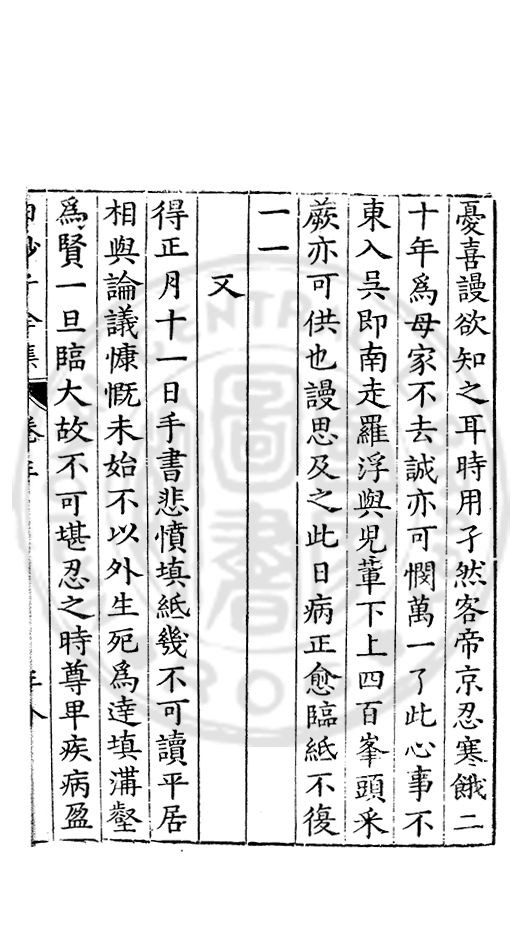 憂喜謾欲知之耳時用孑然客帝京忍寒餓二
十年爲母家不去誠亦可憫萬一了此心事不
東入吳即南走羅浮與兒輩下上四百峯頭采
蕨亦可供也謾思及之此日病正愈臨紙不復
一一
又
得正月十一日手書悲憤填紙幾不可讀平居
相與論議慷慨未始不以外生死爲達填溝壑
爲賢一旦臨大故不可堪忍之時尊卑疾病盈